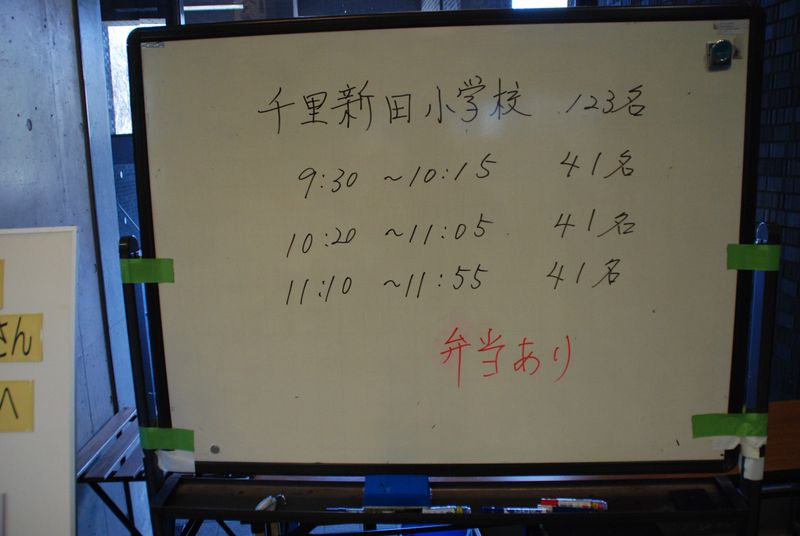 千里新田小学校 123名
9:30 ~10:15 41名
10:20 ~11:05 41名
11:10 ~11:55 41名
弁当あり
さん
へ